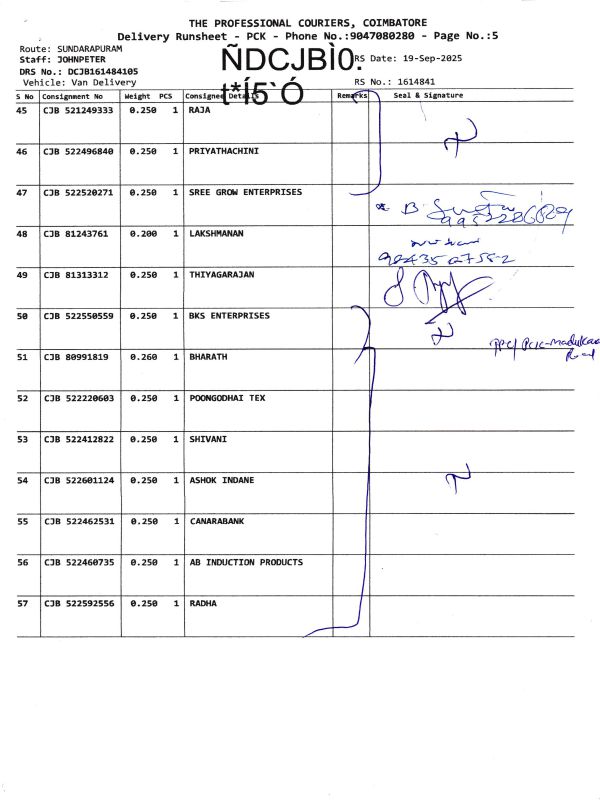 THE PROFESSIONAL COURIERS, COIMBATORE
Delivery Runsheet - PCK - Phone No.:9047080280 - Page No.:5
Route: SUNDARAPURAM
Staff: JOHNPETER
ÑDCJBÌ0.
RS Date: 19-Sep-2025
DRS No.: DCJB161484105
Vehicle: Van Delivery
t*Í5`Ó
RS No.: 1614841
S No Consignment No Weight PCS Consignee Details Remarks Seal & Signature
45 CJB 521249333 0.250 1 RAJA
46 CJB 522496840 0.250 1 PRIYATHACHINI
47 CJB 522520271 0.250 1 SREE GROW ENTERPRISES
48 CJB 81243761 0.200 1 LAKSHMANAN
49 CJB 81313312 0.250 1 THIYAGARAJAN
50 CJB 522550559 0.250 1 BKS ENTERPRISES
51 CJB 80991819 0.260 1 BHARATH
52 CJB 522220603 0.250 1 POONGODHAI TEX
53 CJB 522412822 0.250 1 SHIVANI
54 CJB 522601124 0.250 1 ASHOK INDANE
55 CJB 522462531 0.250 1 CANARABANK
56 CJB 522460735 0.250 1 AB INDUCTION PRODUCTS
57 CJB 522592556 0.250 1 RADHA